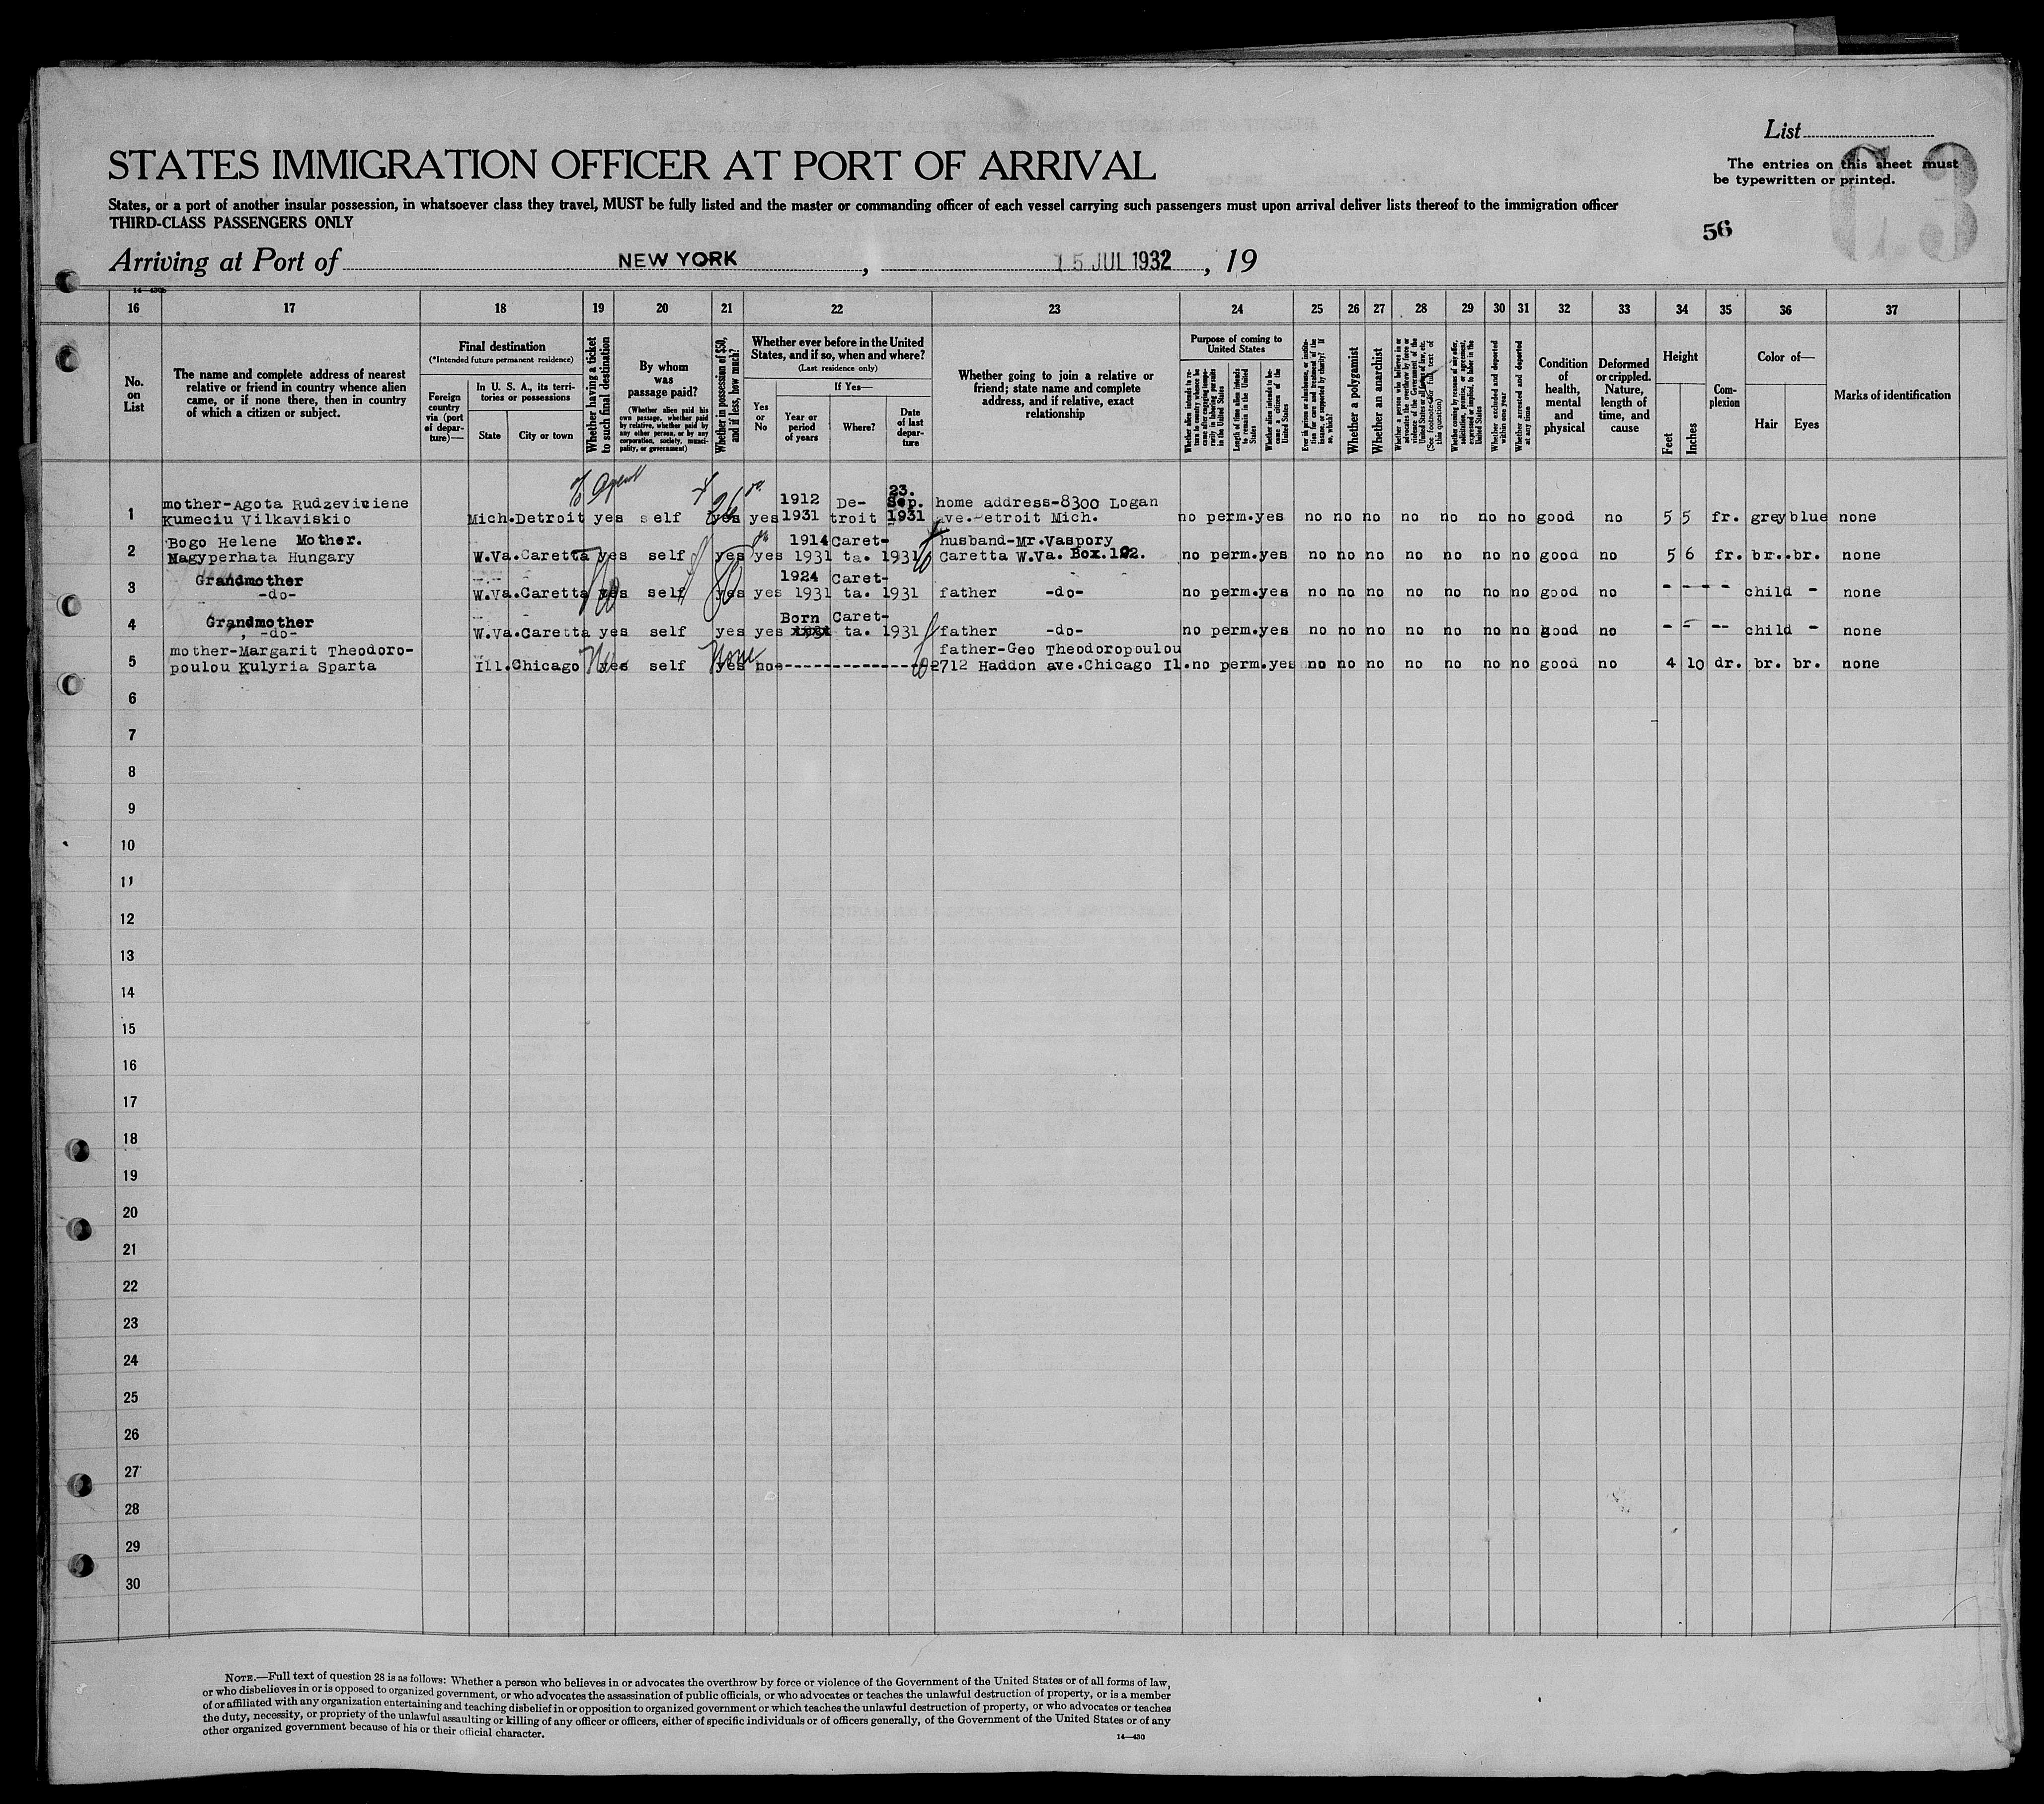 List
STATES IMMIGRATION OFFICER AT PORT OF ARRIVAL
The entries on this sheet must
be typewritten or printed.
C3
States, or a port of another insular possession, in whatsoever class they travel, MUST be fully listed and the master or commanding officer of each vessel carrying such passengers must upon arrival deliver lists thereof to the immigration officer
THIRD-CLASS PASSENGERS ONLY
56
Arriving at Port of NEW YORK, 15 JUL 1932, 19
14—430b
16 17 18 19 20 21 22 23 24 25 26 27 28 29 30 31 32 33 34 35 36 37
No. on List
The name and complete address of nearest relative or friend in country whence alien came, or if none there, then in country of which a citizen or subject.
Final destination
(*Intended future permanent residence)
Foreign country via (port of departure)—
In U. S. A., its territories or possessions
State
City or town
Whether having a ticket to such final destination
By whom was passage paid?
(Whether alien paid his own passage, whether paid by relative, whether paid by any other person, or by any corporation, society, municipality, or government)
Whether in possession of $50, and if less, how much?
Whether ever before in the United States, and if so, when and where?
(Last residence only)
Yes or No
If Yes—
Year or period of years
Where?
Date of last departure
Whether going to join a relative or friend; state name and complete address, and if relative, exact relationship
Purpose of coming to United States
Whether alien intends to return to country whence he came after engaging temporarily in laboring pursuits in the United States
Length of time alien intends to remain in the United States
Whether alien intends to become a citizen of the United States
Ever in prison or almshouse, or institution for care and treatment of the insane, or supported by charity? If so, which?
Whether a polygamist
Whether an anarchist
Whether a person who believes in or advocates the overthrow by force or violence of the Government of the United States or all forms of law, etc. (See footnote for full text of this question)
Whether coming by reasons of any offer, solicitation, promise, or agreement, expressed or implied, to labor in the United States
Whether excluded and deported within one year
Whether arrested and deported at any time
Condition of health, mental and physical
Deformed or crippled. Nature, length of time, and cause
Height
Feet
Inches
Complexion
Color of—
Hair
Eyes
Marks of identification
Agent
mother-Agota Rudzeviziene 1912 De- 23. Sep. home address-8300 Logan
1 Kumeciu Vilkaviskio Mich. Detroit yes self yes yes 1931 troit 1931 ave. Detroit Mich. no perm. yes no no no no no no no good no 5 5 fr. grey blue none
Bogo Helene Mother. 1914 Caret- husband-Mr.Vaspory
2 Nagyperhata Hungary W.Va. Caretta yes self yes yes 1931 ta. 1931 Caretta W.Va. Box.192. no perm. yes no no no no no no no good no 5 6 fr. br. br. none
Grandmother 1924 Caret-
3 -do- W.Va. Caretta yes self yes yes 1931 ta. 1931 father -do- no perm. yes no no no no no no no good no - - - - child - none
Grandmother Born Caret-
4 -do- W.Va. Caretta yes self yes yes ta. 1931 father -do- no perm. yes no no no no no no no good no - - -- child - none
mother-Margarit Theodoro- None father-Geo Theodoropoulou
5 poulou Kulyria Sparta Ill. Chicago yes self yes no---------------- 2712 Haddon ave.Chicago Il. no perm. yes no no no no no no no good no 4 10 dr. br. br. none
6
7
8
9
10
11
12
13
14
15
16
17
18
19
20
21
22
23
24
25
26
27
28
29
30
NOTE.—Full text of question 28 is as follows: Whether a person who believes in or advocates the overthrow by force or violence of the Government of the United States or of all forms of law,
or who disbelieves in or is opposed to organized government, or who advocates the assassination of public officials, or who advocates or teaches the unlawful destruction of property, or is a member
of or affiliated with any organization entertaining and teaching disbelief in or opposition to organized government or which teaches the unlawful destruction of property, or who advocates or teaches
the duty, necessity, or propriety of the unlawful assaulting or killing of any officer or officers, either of specific individuals or of officers generally, of the Government of the United States or of any
other organized government because of his or their official character.
14—430